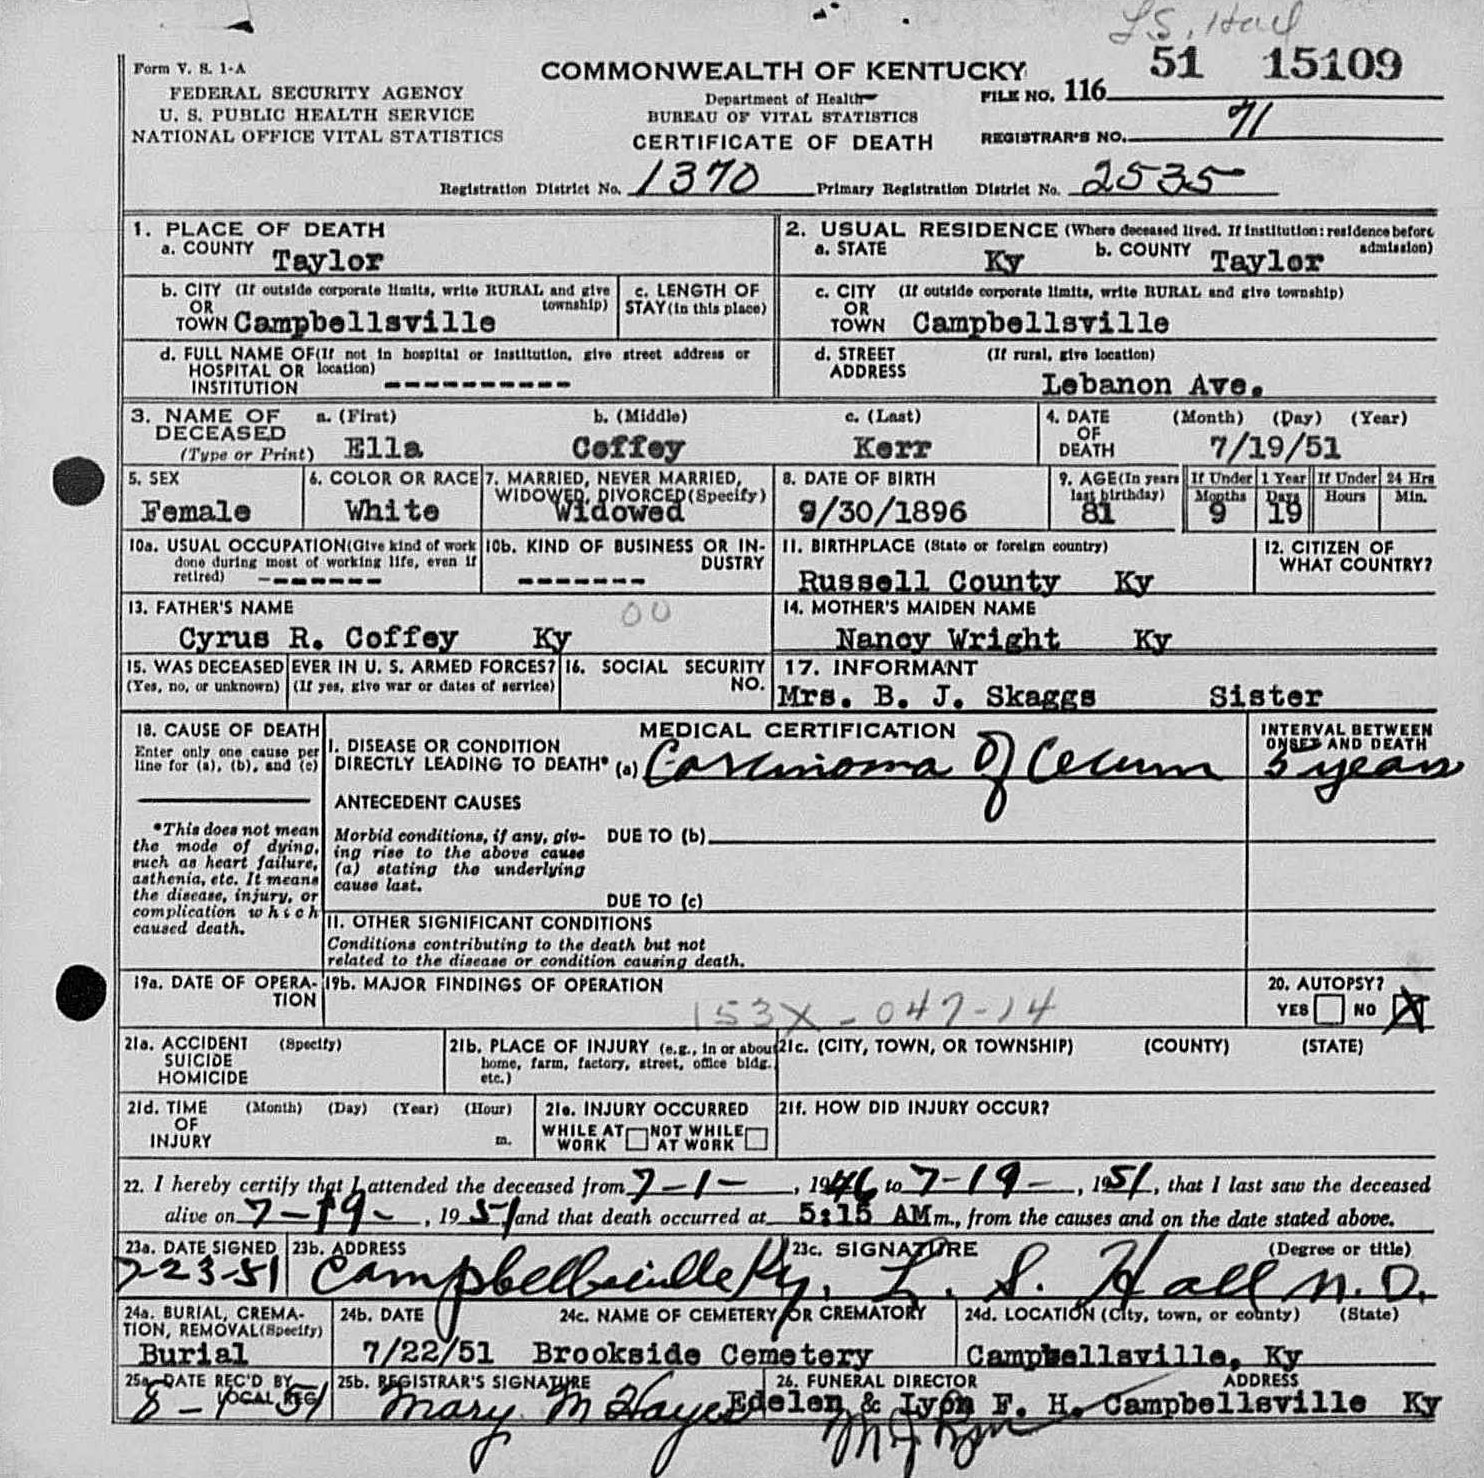 L.S. Hall
Form V. S. 1-A
FEDERAL SECURITY AGENCY
U. S. PUBLIC HEALTH SERVICE
NATIONAL OFFICE VITAL STATISTICS
COMMONWEALTH OF KENTUCKY
Department of Health
BUREAU OF VITAL STATISTICS
CERTIFICATE OF DEATH
FILE NO. 116 51 15109
REGISTRAR'S NO. 71
Registration District No. 1370 Primary Registration District No. 2535
1. PLACE OF DEATH
a. COUNTY Taylor
2. USUAL RESIDENCE (Where deceased lived. If institution: residence before admission)
a. STATE Ky b. COUNTY Taylor
b. CITY (If outside corporate limits, write RURAL and give township)
OR
TOWN Campbellsville
c. LENGTH OF
STAY (in this place)
c. CITY (If outside corporate limits, write RURAL and give township)
OR
TOWN Campbellsville
d. FULL NAME OF (If not in hospital or institution, give street address or
HOSPITAL OR location)
INSTITUTION ----------
d. STREET (If rural, give location)
ADDRESS Lebanon Ave.
3. NAME OF a. (First) b. (Middle) c. (Last)
DECEASED
(Type or Print) Ella Coffey Kerr
4. DATE (Month) (Day) (Year)
OF
DEATH 7/19/51
5. SEX
Female
6. COLOR OR RACE
White
7. MARRIED, NEVER MARRIED,
WIDOWED, DIVORCED (Specify)
Widowed
8. DATE OF BIRTH
9/30/1896
9. AGE (In years
last birthday)
81
If Under 1 Year
Months Days
9 19
If Under 24 Hrs
Hours Min.
10a. USUAL OCCUPATION (Give kind of work
done during most of working life, even if
retired) -------
10b. KIND OF BUSINESS OR IN-
DUSTRY
-------
11. BIRTHPLACE (State or foreign country)
Russell County Ky
12. CITIZEN OF
WHAT COUNTRY?
13. FATHER'S NAME
00
Cyrus R. Coffey Ky
14. MOTHER'S MAIDEN NAME
Nancy Wright Ky
15. WAS DECEASED EVER IN U. S. ARMED FORCES?
(Yes, no, or unknown) (If yes, give war or dates of service)
16. SOCIAL SECURITY
NO.
17. INFORMANT
Mrs. B. J. Skaggs Sister
18. CAUSE OF DEATH
Enter only one cause per
line for (a), (b), and (c)
*This does not mean
the mode of dying,
such as heart failure,
asthenia, etc. It means
the disease, injury, or
complication which
caused death.
MEDICAL CERTIFICATION
I. DISEASE OR CONDITION
DIRECTLY LEADING TO DEATH* (a) Carcinoma of Cecum
INTERVAL BETWEEN
ONSET AND DEATH
5 years
ANTECEDENT CAUSES
Morbid conditions, if any, giv-
ing rise to the above cause
(a) stating the underlying
cause last.
DUE TO (b)
DUE TO (c)
II. OTHER SIGNIFICANT CONDITIONS
Conditions contributing to the death but not
related to the disease or condition causing death.
19a. DATE OF OPERA-
TION
19b. MAJOR FINDINGS OF OPERATION
153X-047-14
20. AUTOPSY?
YES NO X
21a. ACCIDENT (Specify)
SUICIDE
HOMICIDE
21b. PLACE OF INJURY (e.g., in or about
home, farm, factory, street, office bldg.
etc.)
21c. (CITY, TOWN, OR TOWNSHIP) (COUNTY) (STATE)
21d. TIME (Month) (Day) (Year) (Hour)
OF
INJURY m.
21e. INJURY OCCURRED
WHILE AT NOT WHILE
WORK AT WORK
21f. HOW DID INJURY OCCUR?
22. I hereby certify that I attended the deceased from 7-1-, 1946 to 7-19-, 1951, that I last saw the deceased
alive on 7-19-, 1951 and that death occurred at 5:15 AM m., from the causes and on the date stated above.
23a. DATE SIGNED
7-23-51
23b. ADDRESS
Campbellsville Ky.
23c. SIGNATURE (Degree or title)
L. S. Hall M.D.
24a. BURIAL, CREMA-
TION, REMOVAL (Specify)
Burial
24b. DATE
7/22/51
24c. NAME OF CEMETERY OR CREMATORY
Brookside Cemetery
24d. LOCATION (City, town, or county) (State)
Campbellsville, Ky
25a. DATE REC'D BY
LOCAL REG.
8-1-51
25b. REGISTRAR'S SIGNATURE
Mary M Hayes
26. FUNERAL DIRECTOR ADDRESS
Edelen & Lyon F. H. Campbellsville Ky